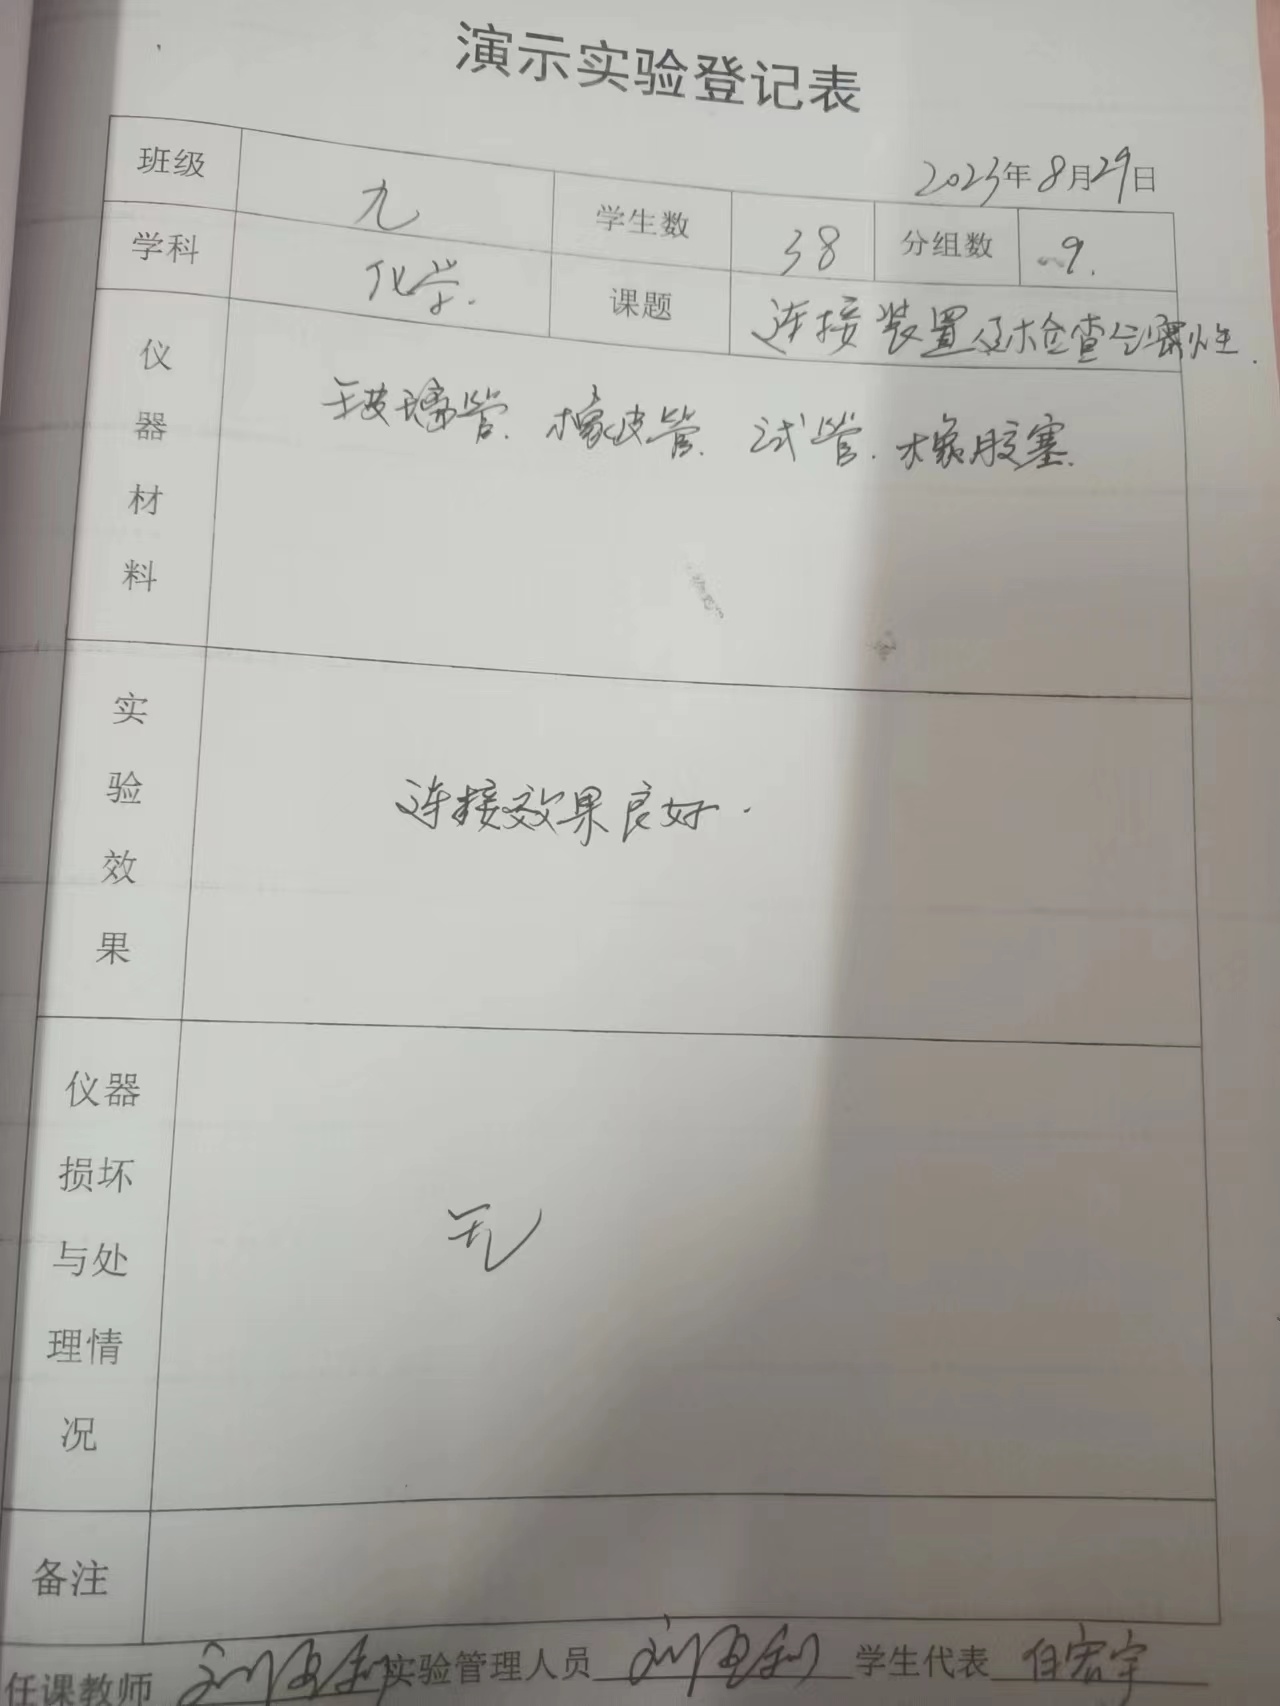 演示实验登记表
2023年8月29日
班级 九 学生数 38 分组数 9.
学科 化学. 课题 连接装置及检查气密性.
仪器材料 玻璃管. 橡皮管. 试管. 橡胶塞.
实验效果 连接效果良好.
仪器
损坏
与处
理情
况 无
备注
任课教师 实验管理人员 学生代表 任宏宇